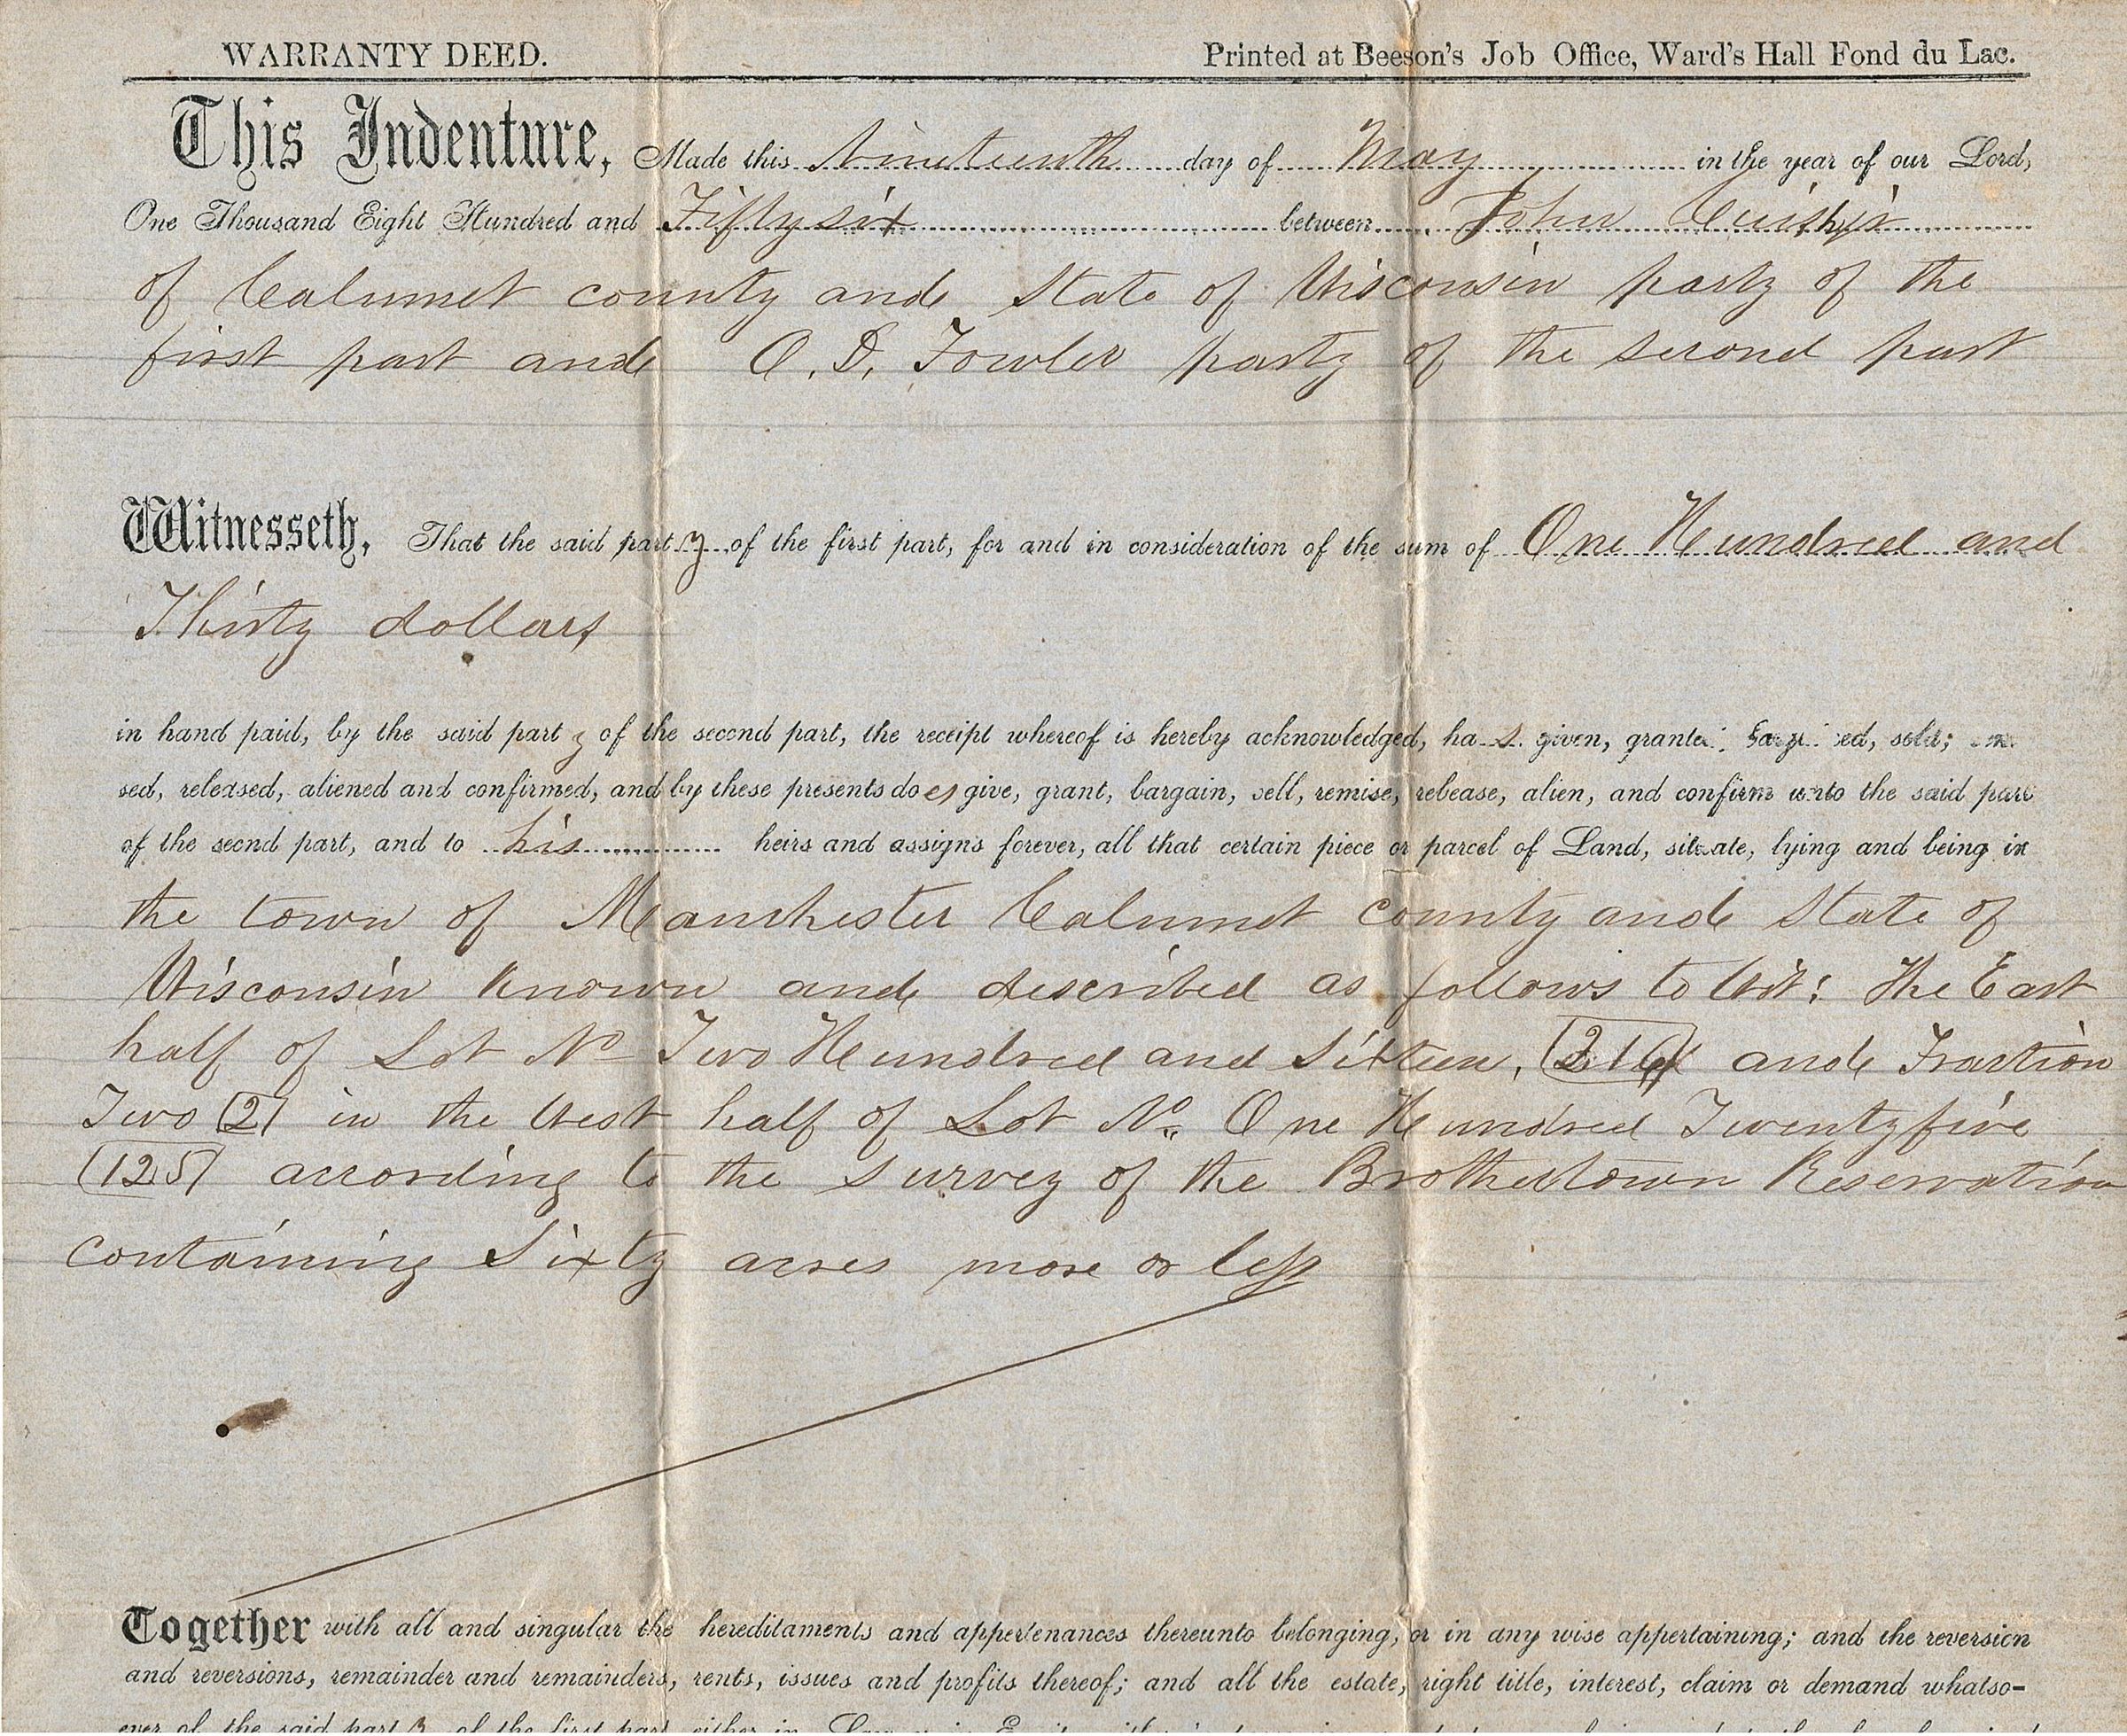 WARRANTY DEED. Printed at Beeson's Job Office, Ward's Hall Fond du Lac.
This Indenture, Made this Nineteenth day of May in the year of our Lord,
One Thousand Eight Hundred and Fifty six between John
of Calumet county and State of Wisconsin party of the
first part and O. D. Fowler party of the second part
Witnesseth, That the said party of the first part, for and in consideration of the sum of One Hundred and
Thirty dollars
in hand paid, by the said party of the second part, the receipt whereof is hereby acknowledged, has given, sold;
sed, released, aliened and confirmed, and by these presents does give, grant, bargain, sell, remise, release, alien, and confirm unto the said part
of the secnd part, and to his heirs and assigns forever, all that certain piece or parcel of Land, situate, lying and being in
the town of Manchester Calumet county and State of
Wisconsin known and described as follows to Wit: The East
half of Lot No Two Hundred and Sixteen, (216) and Fraction
Two (2) in the West half of Lot No. One Hundred Twenty five
(125) according to the survey of the Brothertown Reservation
containing Sixty acres more or less
Together with all and singular the hereditaments and appertenances thereunto belonging, or in any wise appertaining; and the reversion
and reversions, remainder and remainders, rents, issues and profits thereof; and all the estate, right title, interest, claim or demand whatso-
ever of the said party of the first part, either in Law